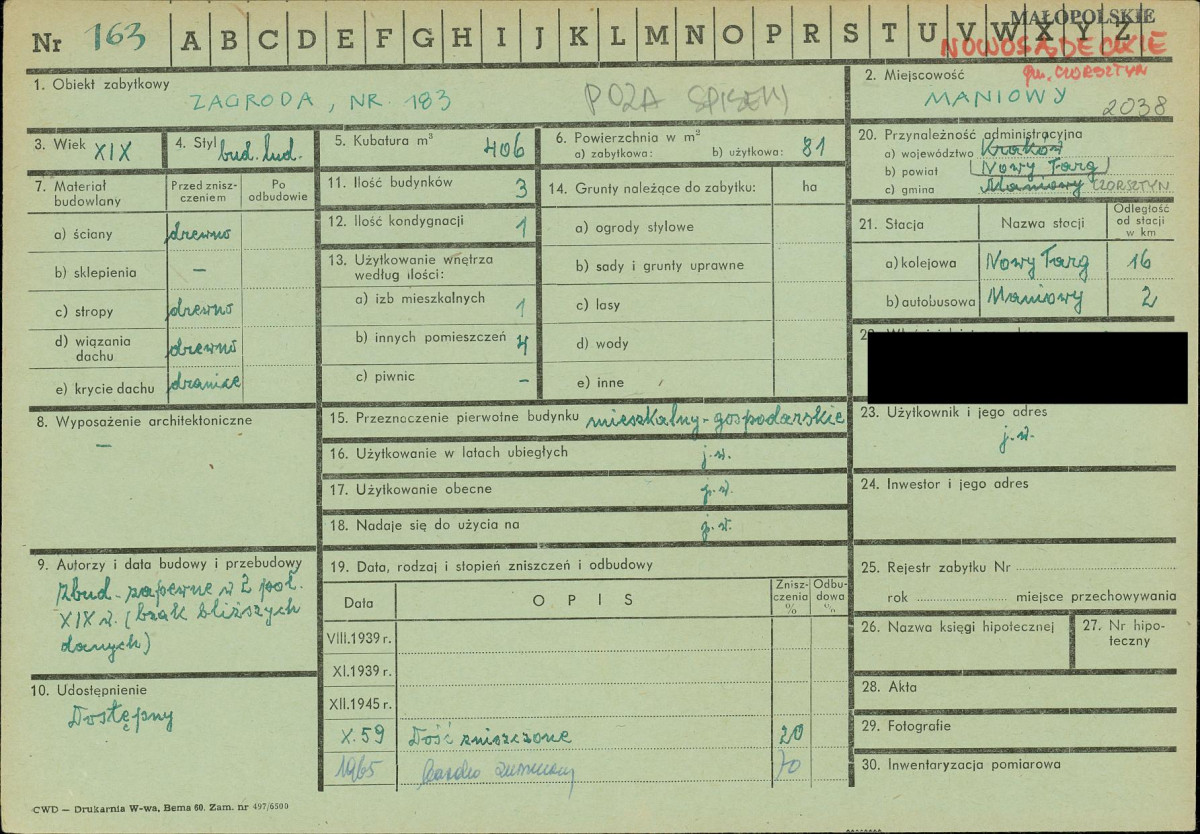 MAŁOPOLSKIE
Nr 163 A B C D E F G H I J K L M N O P R S T U V W X Y Z
NOWOSĄDECKIE
gm. CZORSZTYN
1. Obiekt zabytkowy
ZAGRODA, NR 183
POZA SPISEM
2. Miejscowość
MANIOWY
2038
3. Wiek XIX
4. Styl bud. lud.
5. Kubatura m³ 406
6. Powierzchnia w m²
a) zabytkowa: b) użytkowa: 81
20. Przynależność administracyjna
a) województwo Kraków
b) powiat Nowy Targ
c) gmina Maniowy CZORSZTYN
7. Materiał budowlany
Przed zniszczeniem
Po odbudowie
a) ściany drewno
b) sklepienia –
c) stropy drewno
d) wiązania dachu drewno
e) krycie dachu dranice
11. Ilość budynków 3
12. Ilość kondygnacji 1
13. Użytkowanie wnętrza
według ilości:
a) izb mieszkalnych 1
b) innych pomieszczeń 4
c) piwnic –
14. Grunty należące do zabytku: ha
a) ogrody stylowe
b) sady i grunty uprawne
c) lasy
d) wody
e) inne
21. Stacja Nazwa stacji Odległość od stacji w km
a) kolejowa Nowy Targ 16
b) autobusowa Maniowy 2
8. Wyposażenie architektoniczne
–
15. Przeznaczenie pierwotne budynku mieszkalny-gospodarskie
16. Użytkowanie w latach ubiegłych j.w.
17. Użytkowanie obecne j.w.
18. Nadaje się do użycia na j.w.
23. Użytkownik i jego adres
j.w.
24. Inwestor i jego adres
9. Autorzy i data budowy i przebudowy
zbud. zapewne w 2 poł.
XIX w. (brak bliższych
danych)
10. Udostępnienie
Dostępny
19. Data, rodzaj i stopień zniszczeń i odbudowy
Data OPIS Zniszczenia % Odbudowa %
VIII.1939 r.
XI.1939 r.
XII.1945 r.
X.59 Dość zniszczone 20
1965 bardzo zniszczony 70
25. Rejestr zabytku Nr
rok miejsce przechowywania
26. Nazwa księgi hipotecznej
27. Nr hipoteczny
28. Akta
29. Fotografie
30. Inwentaryzacja pomiarowa
CWD — Drukarnia W-wa, Bema 60. Zam. nr 497/6500